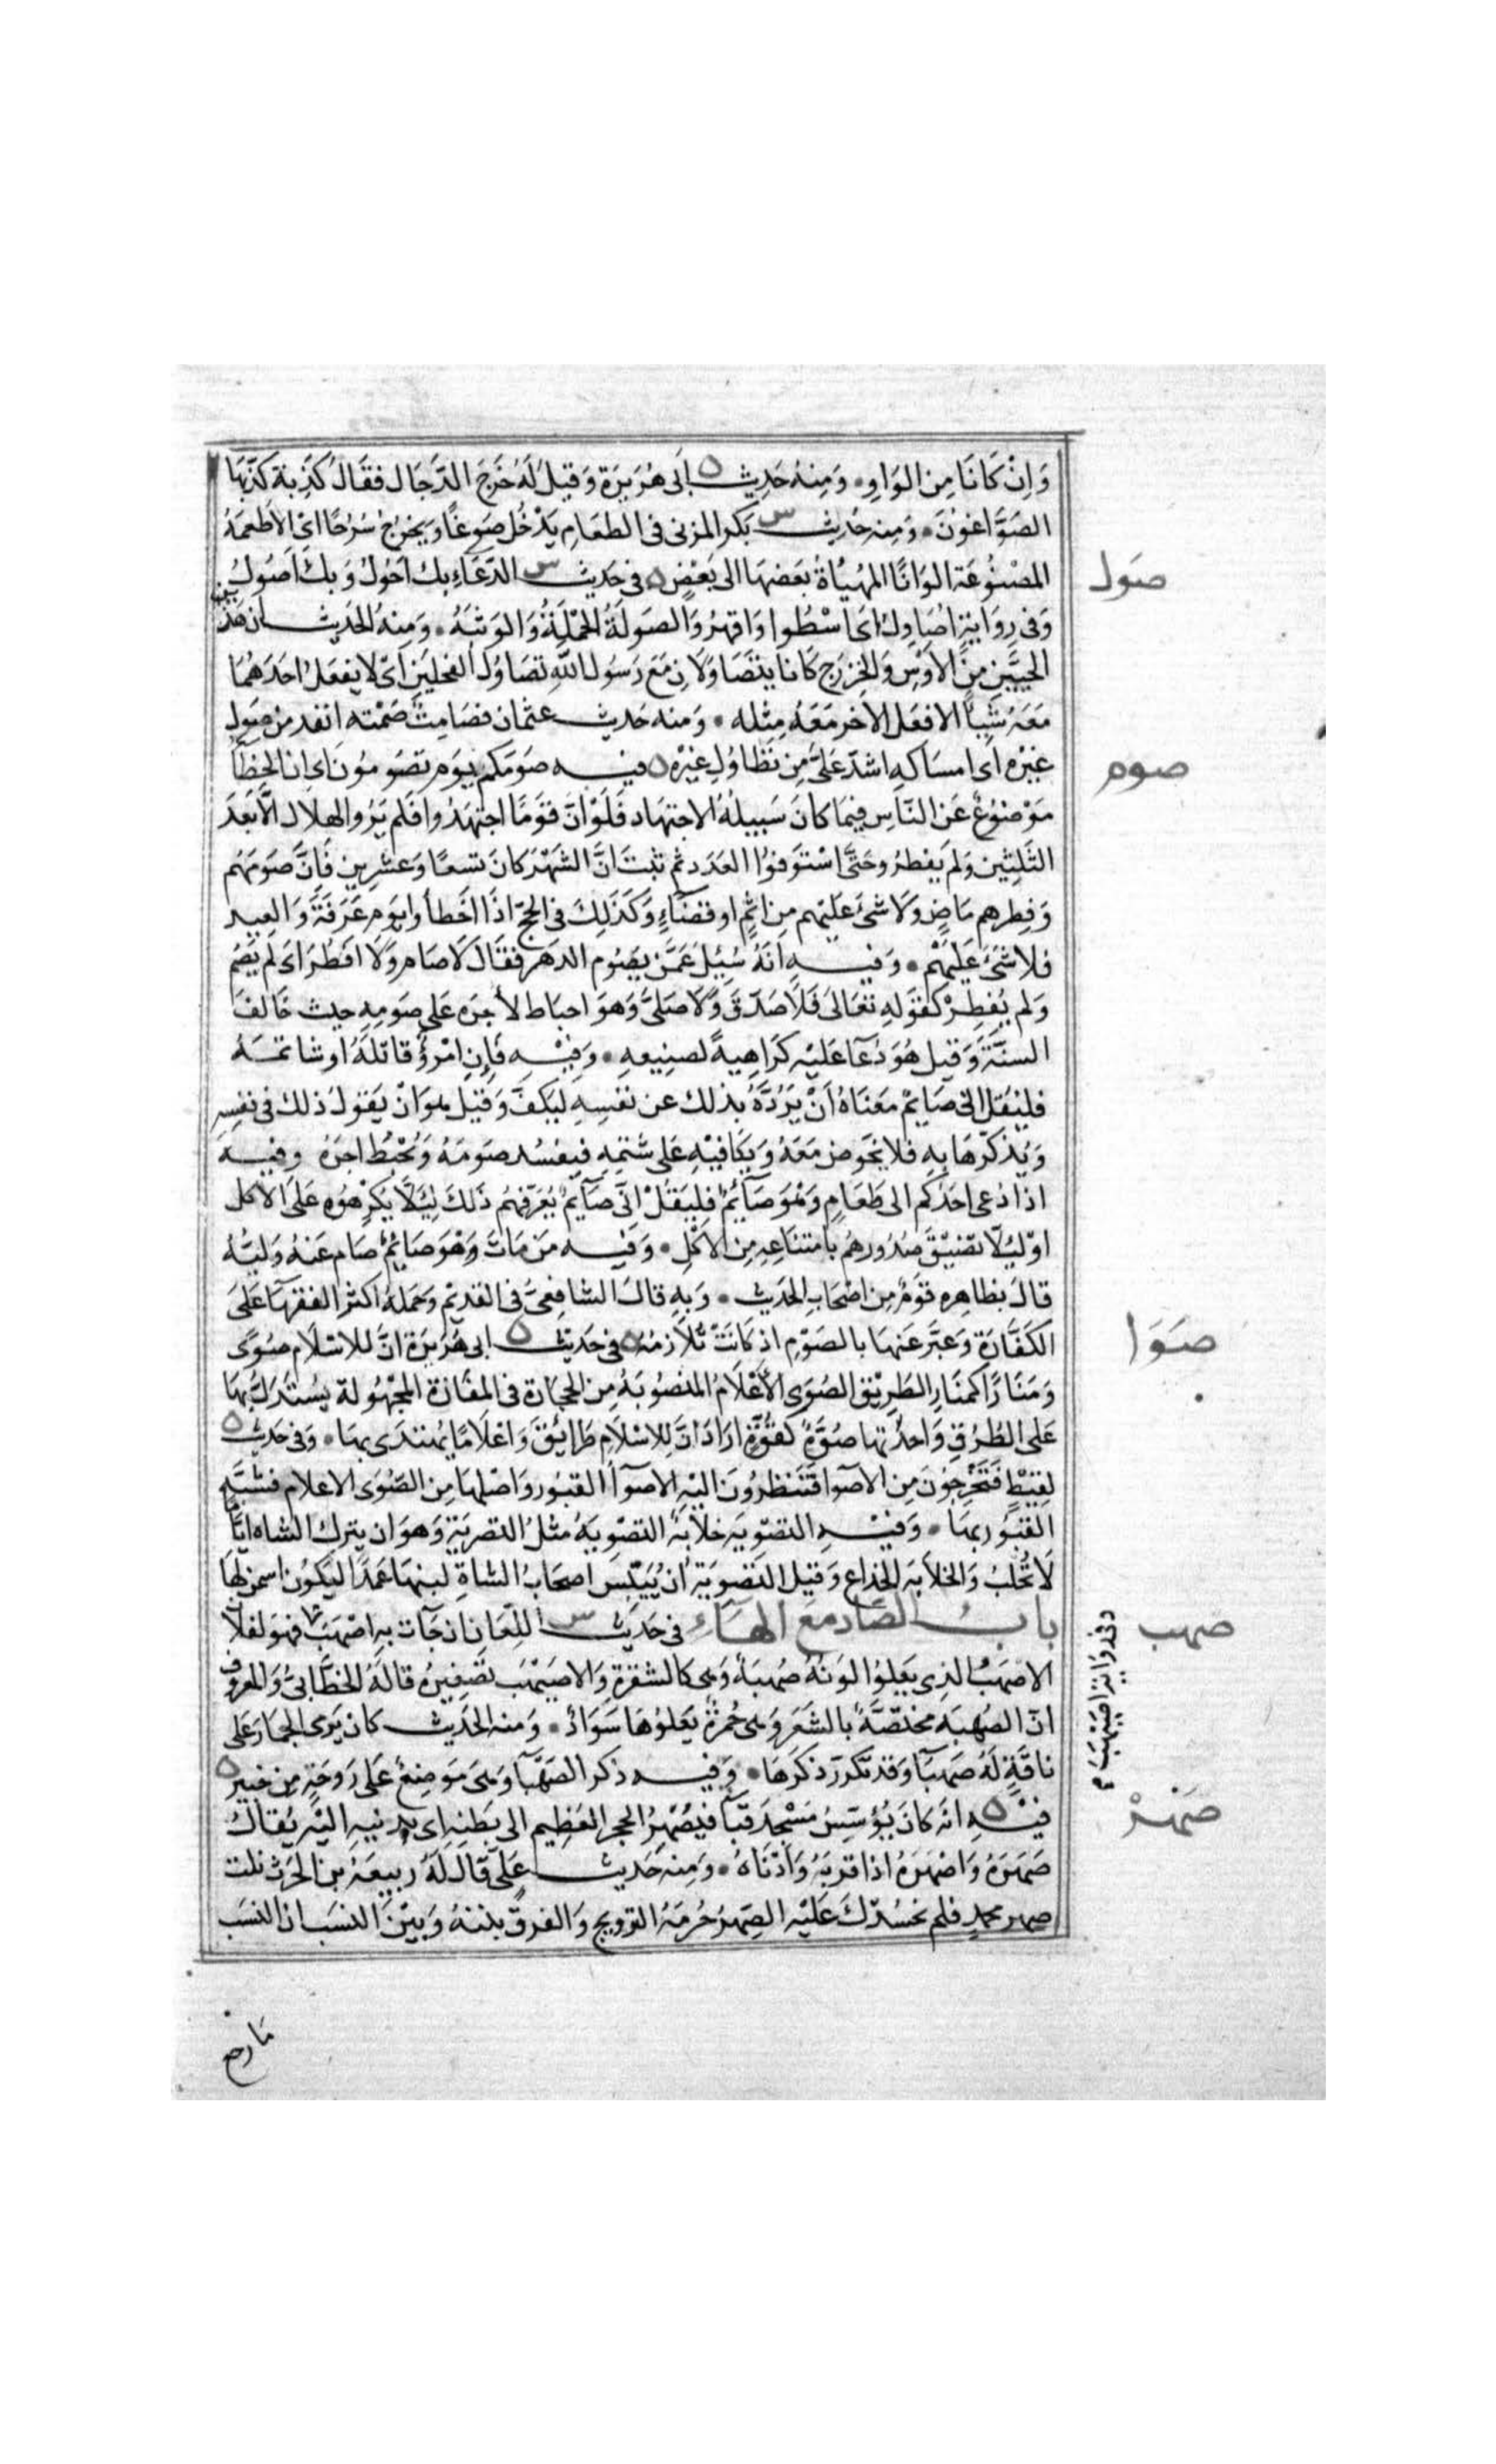 وَاِنْ كَانَا مِنَ الوَاوِ. وَمِنهُ حَدِيث ه اَبى هُرَيرَة وَقِيلَ لَهُ خَرَجَ الدَّجَال فقَالَ كَذِبَة كَذَبَهَا
الصَوَّاغوُنَ. وَمِنه حَدِيث س بَكر المزنى فى الطعَامِ يَدْخُل صَوغًا وَيخرُجُ سُرُحًا اىْ الاَطعمَةُ
المصْنُوعَة الوَانًا المهُيّاةُ بَعَضهَا الى بَعْضٍ ه فى حَدِيث س الدَّعَاءِ بك اَحُولُ وَبِكَ اَصُولُ
صَول
وَفى رِوَايَةٍ اُصَاوِلُ اى اسْطُوا وَاقهرُ وَالصَولَةُ الحَمْلَةُ وَالوَثبَةُ. وَمِنهُ الحَدِيث ان هَذَين
الحَيَّيَنِ مِنَ الاَوْسِ وَالخزرَج كَانَا يتَصَاوَلاَنِ مَعَ رَسُول اللهِ تصَاوُلَ الفحلَينِ اَىْ لا يفعَلُ احَدَهُمَا
مَعَهُ شَيئًا الا فعَل الاخر مَعَهُ مِثله. وَمنه حَديث عثمان فصَامِتٌ صَمْته انفد من صَول
غيْرِه اى امسَاكهِ اشدّ عَلَىَّ مِن تَطَاوُلِ غيْره ه فيه صَومَكم يَوَم تصُومُونَ اى ان الخطَأَ
صوم
مَوْضُوعٌ عَن النّاس فيمَا كانَ سَبيلُهُ الاجتهَاد فَلَوْ انَّ قوَمًا اجتهَدُوا فلَم يَرُوا الهلال الَّا بَعَدَ
الثَلٰثِين وَلَم يَفطرُوا حَتَّى اسْتَوفوُا العَدَد ثم ثبتَ انَّ الشَهْرَ كانَ تسعًا وَعشرِين فَاِنَّ صَومَهُم
وَفِطرهم مَاضٍ وَلَا شئَ عَليْهم مِن اثمٍ او قضَاءٍ وَكَذَلِكَ فى الحَجّ اذَا اخَطأوا يوَم عَرَفَةَ وَالعِيد
فلا شَئَ عَليَهمْ. وَفيه اَنَهُ سُئِلَ عَمَّن يصُوم الدهَر فقَالَ لَا صَام وَلَا افطَرَ اى لَم يَصُم
وَلم يُفطِرْ كقوَلهِ تعَالىَ فَلاَ صَدّقَ وَلَا صَلىَّ وَهوَ احبَاط لأجرِه عَلى صَومِهِ حيث خَالفَ
السنّةَ وَقيل هُوَ دُعَآ عَليْه كَرَاهيةً لصنِيعهِ. وَفيْه فَاِنِ امْرُؤٌ قَاتلَهُ او شَاتمَهُ
فليَقُل انِّى صَايْم مَعَنَاهُ اَنْ يَرُدَّهُ بذلك عن نفسِهِ ليَكفَّ وَقيل هوَ انْ يَقولُ ذلك فى نفسِه
وَيُذكّرهَا بهِ فَلا يخَوض مَعَهُ وَيكَافيْهِ عَلى شَتمِهِ فيفسُد صَومَهُ وَيُحْبُط اجرَهُ وفيه
اذا دُعى احَدُكم الى طَعَامٍ وَهْوَ صَآئِمٌ فليَقُلْ اِنّى صَآيمٌ يُعَرّفهُم ذَلكَ لِئَلاَّ يُكْرِهُوه عَلَى الاكل
اوْ لِئَلاَّ تضِيْقَ صُدُورهُم بامتنَاعِهِ مِن الاَكْلِ. وَفيه مَن مَاتَ وَهْوَ صَايُمٌ صَام عَنهُ وَليُّهُ
قالَ بظاهِره قوَمٌ مِن اصْحَابِ الحَدِيث. وَبهِ قالَ الشافِعىُّ فى القَدِيْم وَحَملهُ اكثر الفقهَآ عَلىَ
الكَفَّارَة وَعبّرَ عَنهَا بالصَوْمِ اذ كَانَتْ تُلاَزمُهُ ه فى حَدِيْث ه ابى هُرَيرَة انَّ للاسْلَام صُوًى
صَوَا
وَمَنَارًا كمنَارِ الطَريْق الصُوَى الأَعْلَامُ المنصُوبَهُ مِن الحجَارَة فى المفَازَة المجْهُولة يسُتَدَلُّ بهَا
عَلى الطُرُقِ وَاحدُتها صُوَّةٌ كقُوَّةٍ ارَادَ انَّ لِلاسْلَامِ طَرَائِقَ وَاعْلَامًا يُهتدَى بهَا. وَفى حَدِيث ه
لقيْطٍ فَتَخْرجُونَ مِن الاَصوَا فَتَنظرُونَ اليْهِ الاصوَآ القبُور وَاصْلهَا مِن الصُوَى الاعلام فشبَّهَ
القبُور بهَا. وَفيْه التصْويَه خلاَبَهٌ التصْوِيَهُ مثلُ التصريَةِ وَهوَ ان يترك الشاه ايَّامًا
لَا تُحْلَبُ وَالخلاَبَه الخداع وَقيل التصْوِيَة اَنْ يُيَبّس اصحَابُ الشاةِ لبنهَا عَمدًا ليَكُون اسمن لهَا
بابُ الصَاد مَعَ الهَآء فى حَدِيث س اللّعَان ان جَآت بهِ اصْهَبَ فهوَ لفلان
صهب
وفى رواية اصَيْهَب
الاَصهَبُ الذِى يَعلوُا لوَنهُ صُهبَةٌ وَهى كالشقرَةِ وَالاصَيْهَب تَصغِيرُه قالَهُ الخطَّابىُّ وَالمعروُف
انّ الصُهبَه مختصَّةٌ بالشَعَر وَهى حُمرَةٌ يَعلوُهَا سَوَادٌ. وَمنه الحَدِيث كان يَرمى الجمَارَ عَلى
ناقَةٍ لَهُ صَهبَآ وَقد تكَرر ذكرَهَا. وَفيه ذكر الصَهَبَآ وَهىَ مَوضِعٌ عَلى رَوحَةٍ مِن خيبر ه
فيْه ه انَه كانَ يُؤسِّسُ مَسْجدَ قبَآ فيُصْهِرُ الحجر العَظيم الى بَطنِهِ اى يدنيهِ اليْه يُقالُ
صَهرْ
صَهَرَهُ وَاصْهَرَهُ اذا قربَهُ وَادْنَاهُ. وَمِنه حَدِيث عَلىّ قَالَ لَهُ رَبيعَهُ بن الحَرث نلت
صِهر محمد فلم نحسُدْكَ عَليْه الصِهرُ حُرمَهُ التزويج وَالفرق بينَهُ وَبيْنَ النسَب ان النسَب
مَا رجع